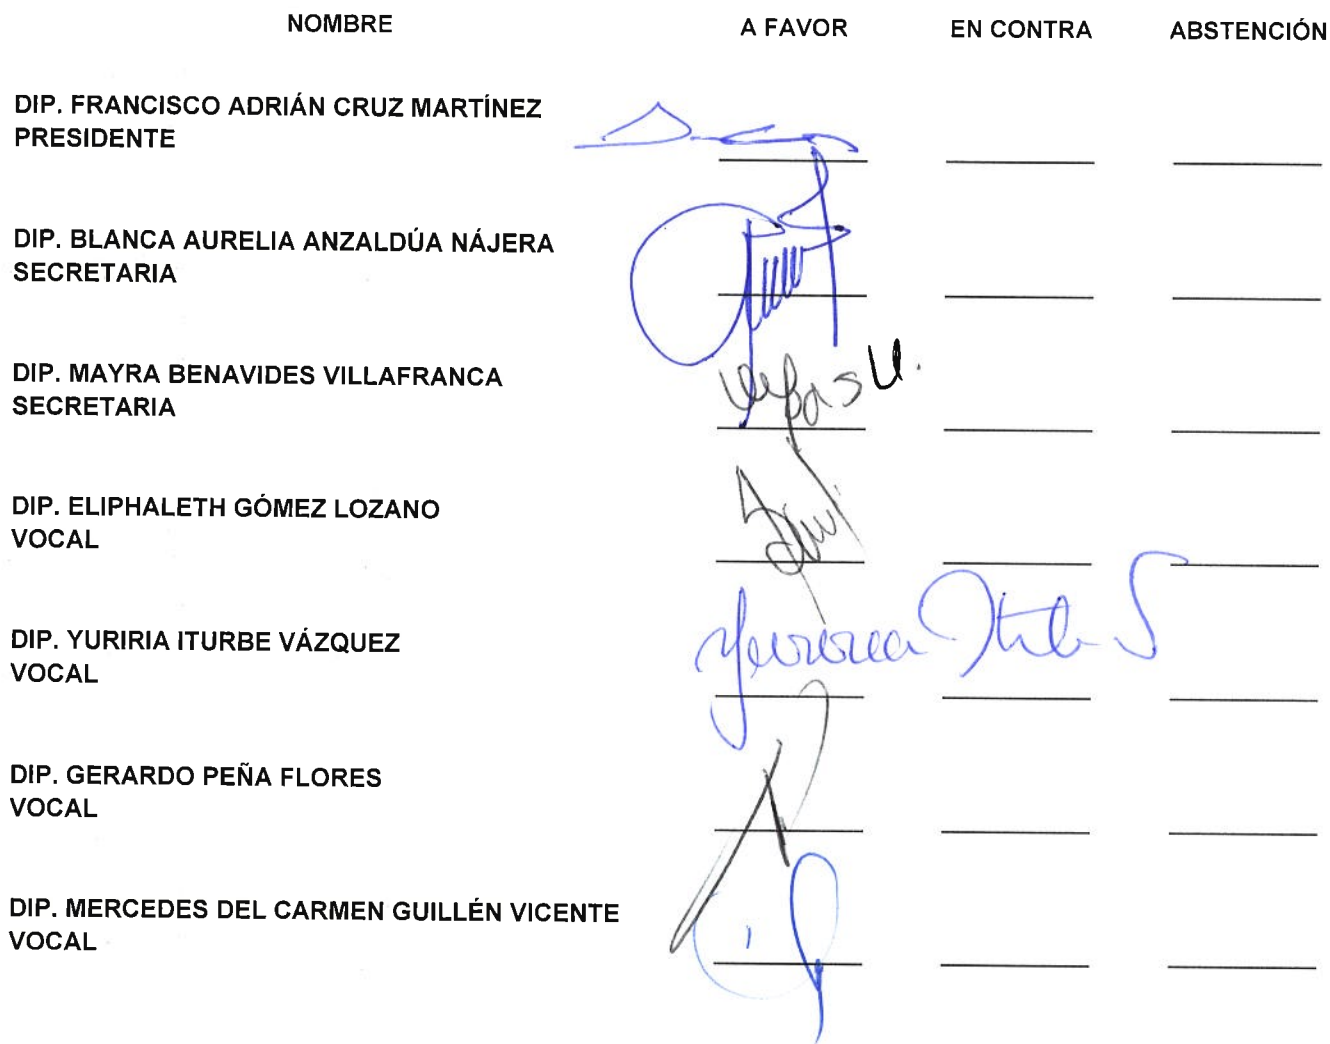 NOMBRE A FAVOR EN CONTRA ABSTENCIÓN
DIP. FRANCISCO ADRIÁN CRUZ MARTÍNEZ
PRESIDENTE
DIP. BLANCA AURELIA ANZALDÚA NÁJERA
SECRETARIA
DIP. MAYRA BENAVIDES VILLAFRANCA
SECRETARIA
DIP. ELIPHALETH GÓMEZ LOZANO
VOCAL
DIP. YURIRIA ITURBE VÁZQUEZ
VOCAL
Yuriria Iturbe V
DIP. GERARDO PEÑA FLORES
VOCAL
DIP. MERCEDES DEL CARMEN GUILLÉN VICENTE
VOCAL